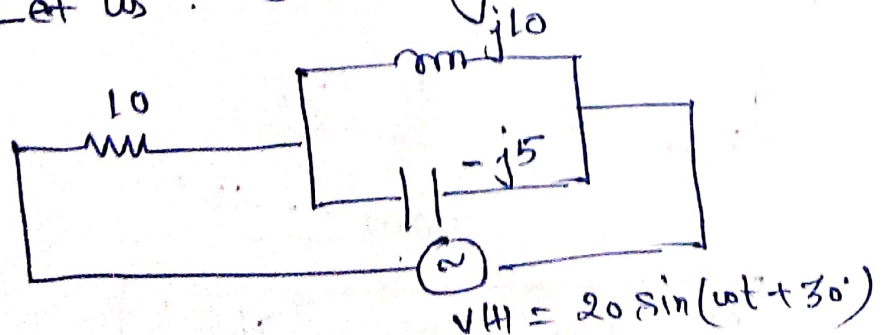 Let us
j10
10
-j5
V(t) = 20 sin(ωt + 30°)